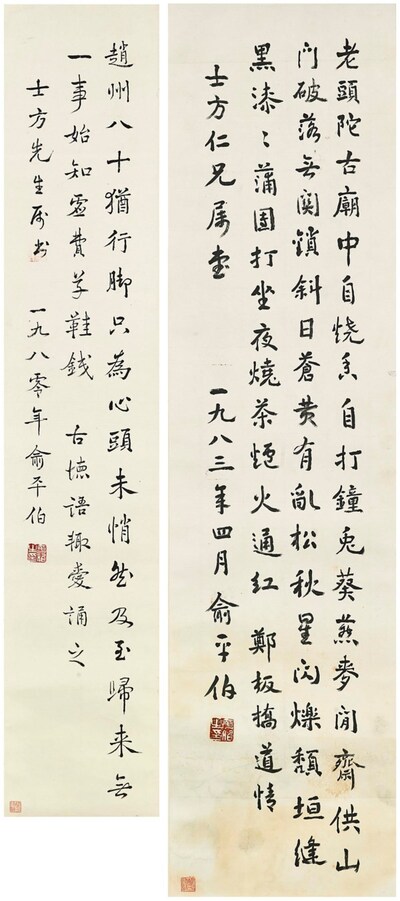 老頭陀古廟中自燒香自打鐘兔葵燕麥閒齋供山
門破落無關鎖斜日蒼黃有亂松秋星閃爍頹垣縫
黑漆〻蒲團打坐夜燒茶爐火通紅 鄭板橋道情
士方仁兄屬書 一九八三年四月俞平伯
趙州八十猶行脚只為心頭未悄然及至歸来無
一事始知虛費草鞋錢 古德語輒愛誦之
士方先生屬書 一九八零年俞平伯